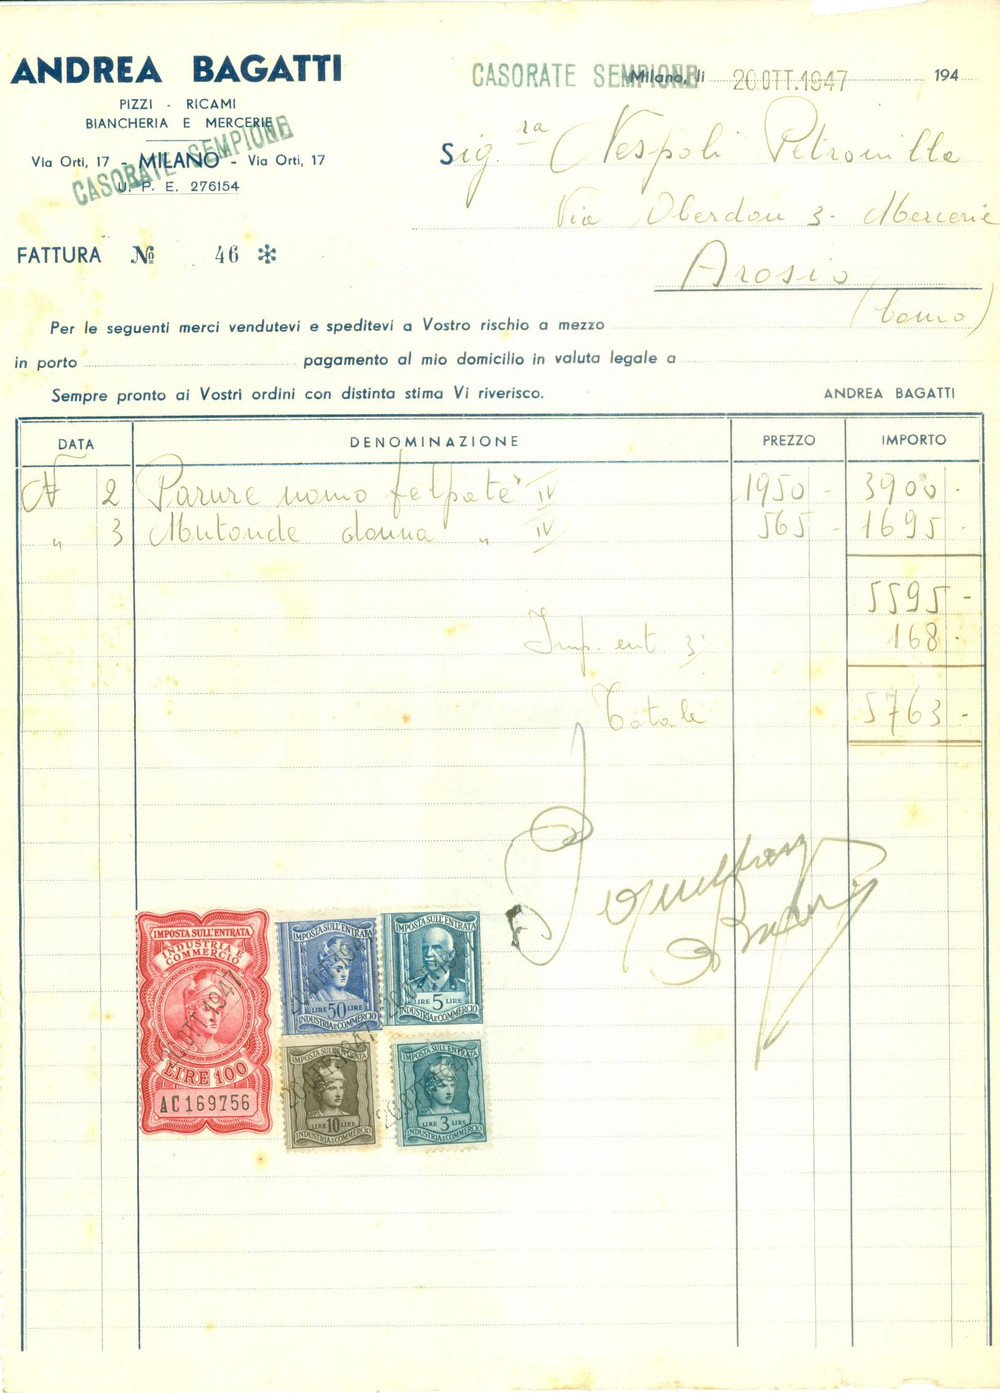 ANDREA BAGATTI
PIZZI - RICAMI
BIANCHERIA E MERCERIE
Via Orti, 17 - MILANO - Via Orti, 17
U. P. E. 276154
CASORATE SEMPIONE
CASORATE SEMPIONE
Milano, li 20 OTT. 1947 194
Sig.ra Nespoli Petronilla
Via Oberdan 3 - Mercerie
Arosio
(Como)
FATTURA No 46 *
Per le seguenti merci vendutevi e speditevi a Vostro rischio a mezzo
in porto pagamento al mio domicilio in valuta legale a
Sempre pronto ai Vostri ordini con distinta stima Vi riverisco. ANDREA BAGATTI
DATA DENOMINAZIONE PREZZO IMPORTO
N 2 Parure uomo felpate IV 1950 - 3900 -
" 3 Mutande donna " IV 565 - 1695 -
5595 -
Imp. ent. 3 168 -
Totale 5763 -
IMPOSTA SULL'ENTRATA
INDUSTRIA E COMMERCIO
20 OTT. 1947
LIRE 100
AC169756
IMPOSTA SULL'ENTRATA
LIRE 50 LIRE
INDUSTRIA E COMMERCIO
IMPOSTA SULL'ENTRATA
LIRE 5 LIRE
INDUSTRIA E COMMERCIO
IMPOSTA SULL'ENTRATA
LIRE 10 LIRE
INDUSTRIA E COMMERCIO
IMPOSTA SULL'ENTRATA
LIRE 3 LIRE
INDUSTRIA E COMMERCIO